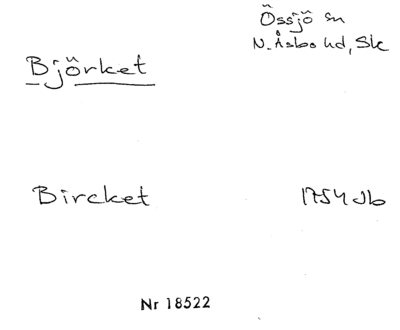 Össjö sn
N. Åsbo hd, Sk
Björket
Bircket 1754 Jb
Nr 18522